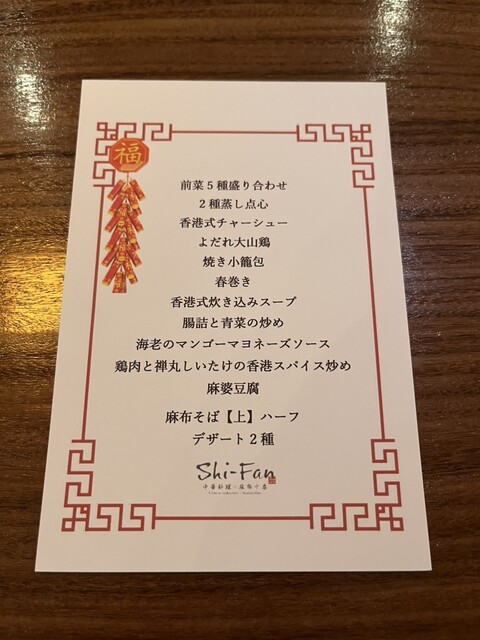 福
前菜５種盛り合わせ
２種蒸し点心
香港式チャーシュー
よだれ大山鶏
焼き小籠包
春巻き
香港式炊き込みスープ
腸詰と青菜の炒め
海老のマンゴーマヨネーズソース
鶏肉と禅丸しいたけの香港スパイス炒め
麻婆豆腐
麻布そば【上】ハーフ
デザート２種
Shi-Fan
中華料理・麻布十番